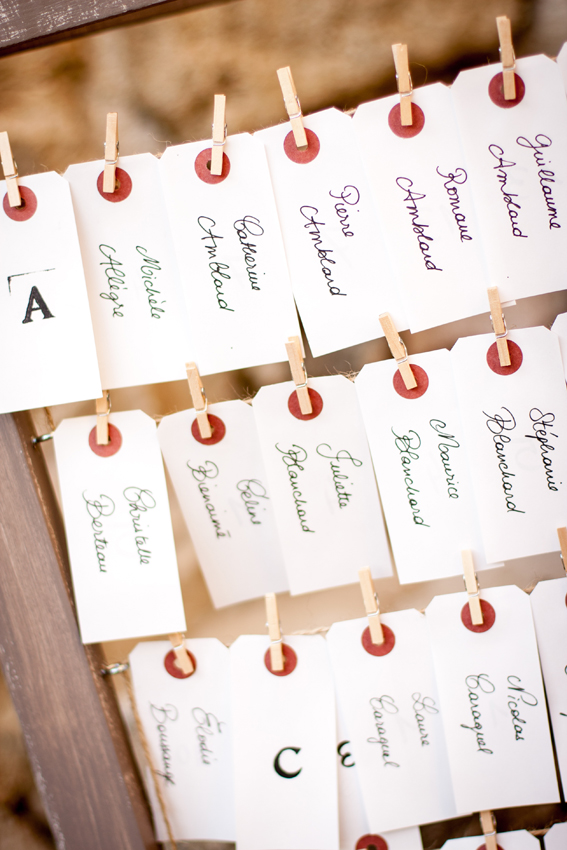 A
Michèle
Allègre
Catherine
Amblard
Pierre
Amblard
Romane
Amblard
Guillaume
Amblard
Christelle
Berteau
Céline
Bienaimé
Juliette
Blanchard
Maurice
Blanchard
Stéphanie
Blanchard
Élodie
Boussange
C
Laure
Caraguel
Nicolas
Caraguel